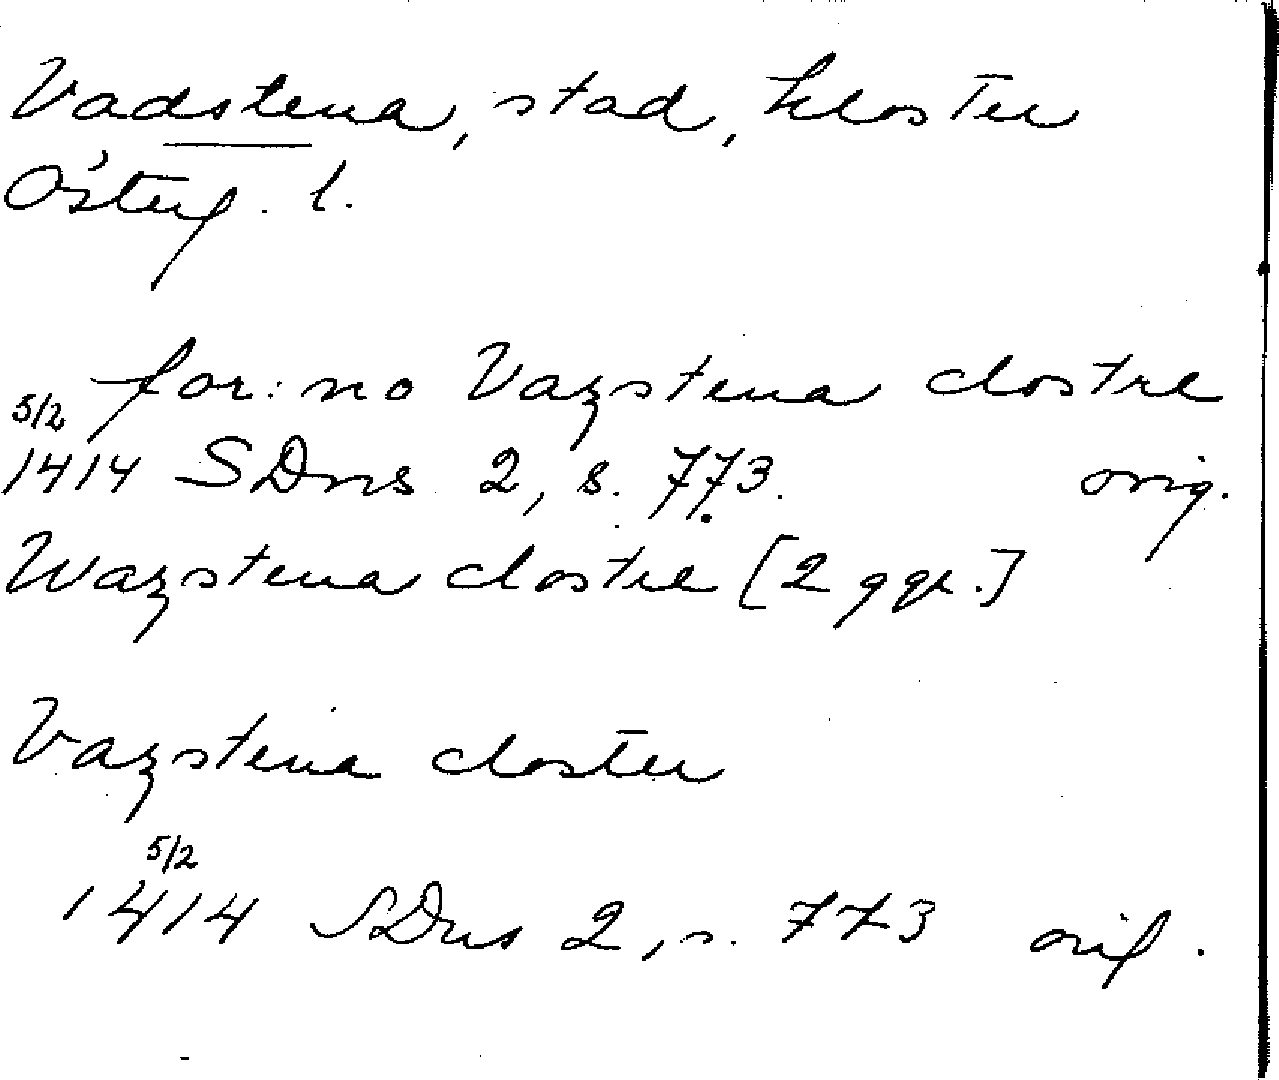 Vadstena, stad, kloster
Österg. l.
for: no Vazstena clostre
5/2
1414 SDns 2, s. 773. orig.
Wazstena clostre [2 ggr.]
Vazstena closter
5/2
1414 SDns 2, s. 773 orig.